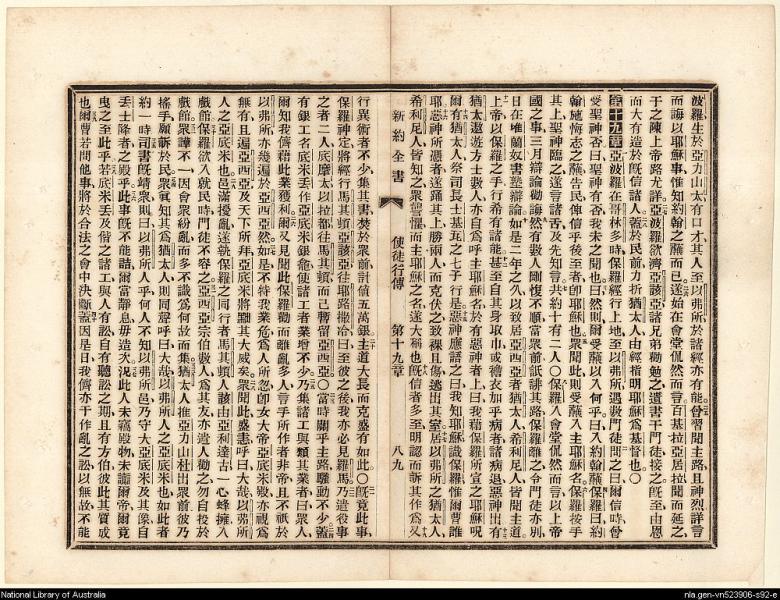 波羅生於亞力山太有口才其人至以弗所於諸經亦有能曾習聞主路且神烈詳言
而誨以耶穌事惟知約翰之蘸而已遂始在會堂侃然而言百基拉亞居拉聞而延之
于之陳上帝路尤詳亞波羅欲濟亞該亞諸兄弟勸勉之遺書于門徒接之旣至由恩
而大有造於旣信諸人蓋於民前力折猶太人由經指明耶穌爲基督也〇
第十九章亞波羅在哥林多時保羅經行上地至以弗所遇數門徒問之曰爾信時曾
受聖神否曰聖神有否我未之聞也曰然則爾受蘸以入何乎曰入約翰蘸保羅曰約
翰施悔志之蘸告民俾信乎後至者卽耶穌也衆聞此則受蘸入主耶穌名保羅按手
其上聖神臨之遂言諸舌及先知言共約十有二人〇保羅入會堂侃然而言以上帝
國之事三月辯論勸誨然有數人剛愎不順當衆前詆誹其路保羅離之令門徒亦別
日在唯蘭奴書塾辯論如是二年之久以致居亞西亞者猶太人希利尼人皆聞主道
上帝以保羅之手行希有諸能甚至自其身取巾或襜衣加乎病者諸病退惡神出有
猶太遨遊方士數人亦自爲呼主耶穌名於有惡神者上曰我藉保羅所宣之耶穌呪
爾有猶太人祭司長士基瓦之七子行是惡神應諸之曰我知耶穌識保羅惟爾曹誰
耶惡神所憑者遂踊其上勝兩人而克伏之致裸且傷逃出其室居以弗所之猶太人
希利尼人皆知之衆覺懼而主耶穌之名遂大稱也旣信者多至明認而訴其作爲又
新約全書 使徒行傳 第十九章 八九
行異術者不少集其書焚於衆前計值五萬銀主道大長而克盛有如此〇旣竟此事
保羅神定將經行馬其頓亞該亞往耶路撒冷曰至彼之後我亦必見羅馬乃遣役事
之者二人底摩太以拉都往馬其頓而己暫留亞西亞〇當時關乎主路騷動不少蓋
有銀工名底米丟作亞底米銀龕使諸工者業增不少乃集諸工與類其業者曰衆人
爾知我儕藉此業獲利爾又見聞此保羅勸而離亂多人言手所作者非帝且不祇於
以弗所亦幾遍於亞西亞然如是不特我業危爲人所忽卽女大帝亞底米殿亦視爲
無有且遍亞西亞及天下所拜亞底米者將黜其大威矣衆聞此盛恚呼曰大哉以弗所
人之亞底米也邑滿擾亂遂執保羅之同行者馬其頓人該由亞利達古一心蜂擁入
戲館保羅欲入就民時門徒不容之亞西亞宗伯數人爲其友亦遣人勸之勿自投於
戲館衆譁不一因會衆紛亂而多不識爲何故而集猶太人推亞力山杜出衆前彼乃
搖手願訴於民衆覺知其爲猶太人則同聲呼曰大哉以弗所人之亞底米也如此者
約一時司書旣靖衆則曰以弗所人乎何人不知以弗所邑乃守大亞底米及其像自
丟士降者之殿乎此事旣不能諮爾當靜息毋造次況此人未竊殿物未讟爾帝爾竟
曳之至此乎若底米丟及偕之諸工與人有訟自有聽訟之期且有方伯彼此其質或
也爾曹若問他事將於合法之會中決斷蓋因是日我儕亦干作亂之訟以無故不能
National Library of Australia
nla.gen-vn523906-s92-e